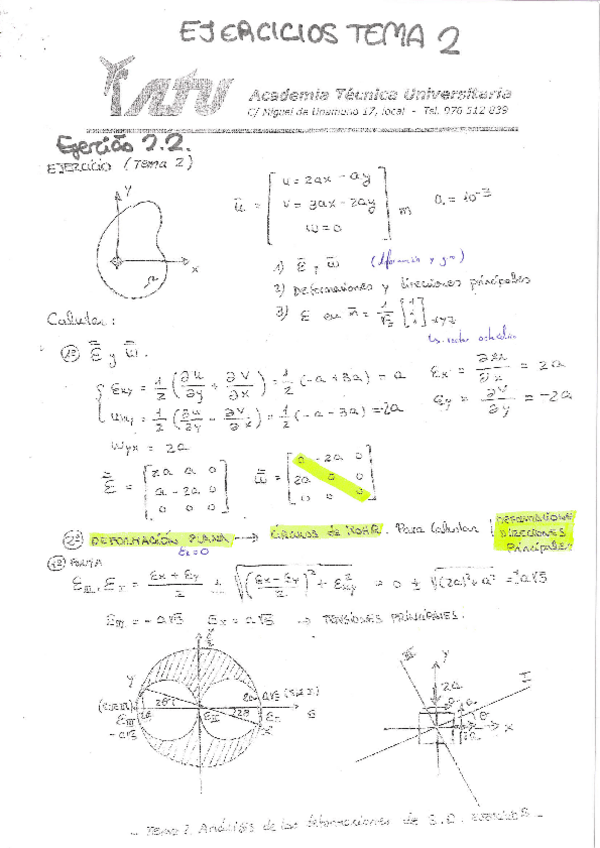 EJERCICIOS TEMA 2
ATU Academia Técnica Universitaria
C/ Miguel de Unamuno 17, local - Tel. 976 512 839
Ejercicio 2.2.
EJERCICIO (Tema 2)
y
x
ū = [ u = 2ax - ay
v = 3ax - 2ay
w = 0 ] m a = 10⁻³
1) ε̿, ω̿
2) Deformaciones y direcciones principales
3) ε en n̄ = 1/√3 [1 1 1] xyz
Calcular:
1º ε̿ y ω̿.
εxy = 1/2 (∂u/∂y + ∂v/∂x) = 1/2 (-a + 3a) = a εx = ∂u/∂x = 2a
ωxy = 1/2 (∂u/∂y - ∂v/∂x) = 1/2 (-a - 3a) = -2a εy = ∂v/∂y = -2a
ωyx = 2a
ε̿ = [ 2a a 0
a -2a 0
0 0 0 ] ω̿ = [ 0 -2a 0
2a 0 0
0 0 0 ]
2º DEFORMACIÓN PLANA → CÍRCULOS DE MOHR. Para Calcular DEFORMACIONES DIRECCIONES Principales
1ª FORMA
εIII, εI = (εx + εy)/2 ± √(((εx - εy)/2)² + εxy²) = 0 ± √((2a)² + a²) = ± a√5
εIII = -a√5 εI = a√5 → TENSIONES PRINCIPALES.
y
εIII
-a√5
2θ
εII
2θ
εI
x
ε
III
y
2a
I
θ
x
- Tema 2. Análisis de las deformaciones de S.D. EJERCICIOS -